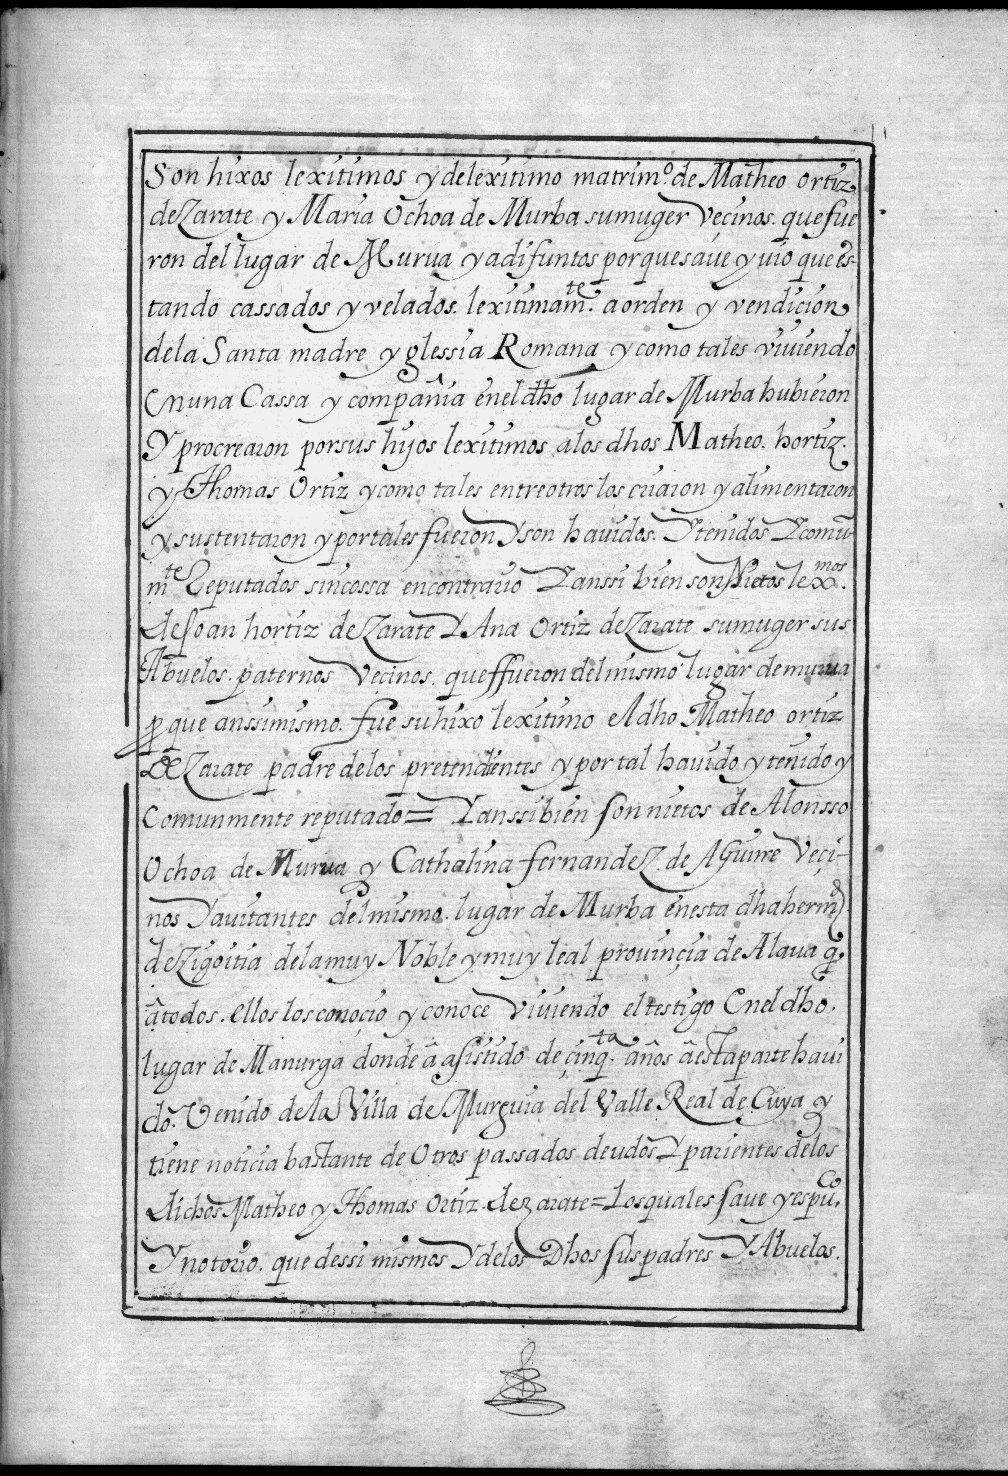 Son hixos lexitimos y de lexitimo matrimº. de Matheo ortiz
de Zarate y Maria Ochoa de Murba su muger veçinos. que fue
ron del lugar de Murua ya difuntos porque saue y uio que es-
tando cassados y velados. lexitimamte. a orden y vendicion
de la Santa madre yglessia Romana y como tales viuiendo
en una Cassa y compañia en el dho lugar de Murba hubieron
Y procrearon por sus hijos lexitimos a los dhos Matheo. hortiz.
y Thomas Ortiz y como tales entre otros los criaron y alimentaron
y sustentaron y por tales fueron Y son hauidos. Y tenidos Y comu-
mte Reputados sin cossa en contrario Y anssi bien son Nietos lexmos.
de Joan hortiz de Zarate Y Ana Ortiz de Zarate su muger sus
Abuelos. paternos veçinos. que ffueron del mismo lugar de murua
p que anssimismo. fue su hixo lexitimo el dho Matheo ortiz
de Zarate padre de los pretendientes y por tal hauido y tenido y
Comunmente reputado= Y anssi bien son nietos de Alonsso
Ochoa de Murua y Cathalina fernandez. de Aguirre veçi-
nos Y auitantes del mismo. lugar de Murba en esta dha hermd
de Zigoitia de la muy Noble y muy leal prouinçia de Alaua q.
â todos. ellos los conoçio y conoce viuiendo el testigo en el dho.
lugar de Manurga donde â asistido de çinqta. años â esta parte haui
do. Venido de la Villa de Murguia del Valle Real de Cuya y
tiene noticia bastante de Otros passados deudos Y parientes de los
dichos Matheo y Thomas Ortiz. de zarate= Los quales saue y es puco.
Y notorio. que de ssi mismos Y de los Dhos sus padres Y Abuelos.